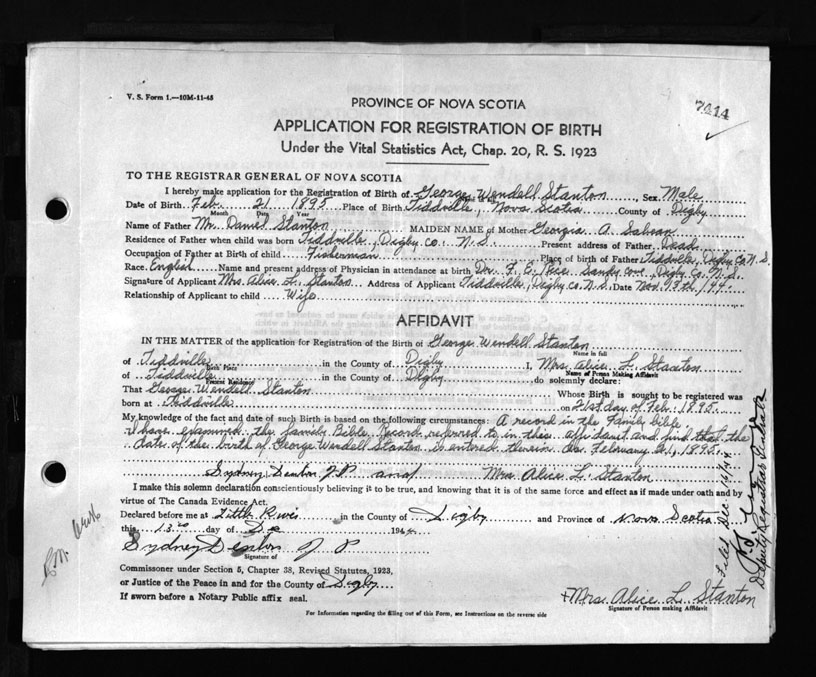 V. S. Form 1.—10M-11-45
7414
PROVINCE OF NOVA SCOTIA
APPLICATION FOR REGISTRATION OF BIRTH
Under the Vital Statistics Act, Chap. 20, R. S. 1923
TO THE REGISTRAR GENERAL OF NOVA SCOTIA
I hereby make application for the Registration of Birth of George Wendell Stanton, Sex Male
Date of Birth Feb. 21 1895 Place of Birth Tiddville, Nova Scotia County of Digby
Month Date Year
Name of Father Mr. Daniel Stanton MAIDEN NAME of Mother Georgia A.
Residence of Father when child was born Tiddville, Digby co. N.S. Present address of Father Dead
Occupation of Father at Birth of child Fisherman Place of birth of Father Tiddville, Digby Co. N.S.
Race English Name and present address of Physician in attendance at birth Dr. F. E. Rice Sandy Cove, Digby Co. N.S.
Signature of Applicant Mrs Alice L. Stanton Address of Applicant Tiddville, Digby co. N.S. Date Nov. 13th
Relationship of Applicant to child Wife
AFFIDAVIT
IN THE MATTER of the application for Registration of the Birth of George Wendell Stanton
Name in full
of Tiddville in the County of Digby I, Mrs. Alice L. Stanton
Birth Place Name of Person Making Affidavit
of Tiddville in the County of Digby do solemnly declare:
Present Residence
That George Wendell Stanton Whose Birth is sought to be registered was
born at Tiddville on 21st day of Feb. 1895.
My knowledge of the fact and date of such Birth is based on the following circumstances: A record in the Family bible
I have examined the family Bible Record referred to in these affidavit and find that the
date of the birth of George Wendell Stanton is entered therein as February 21, 1895.
Sydney Denton J.P. and Mrs. Alice L. Stanton
I make this solemn declaration conscientiously believing it to be true, and knowing that it is of the same force and effect as if made under oath and by
virtue of The Canada Evidence Act.
Declared before me at Little River in the County of Digby and Province of Nova Scotia
this 13 day of 194
Sydney Denton J P
Signature of
Commissioner under Section 5, Chapter 38, Revised Statutes, 1923,
or Justice of the Peace in and for the County of Digby
If sworn before a Notary Public affix seal.
Mrs. Alice L. Stanton
Signature of Person making Affidavit
For Information regarding the filling out of this Form, see Instructions on the reverse side
Filed Dec.
Deputy Registrar